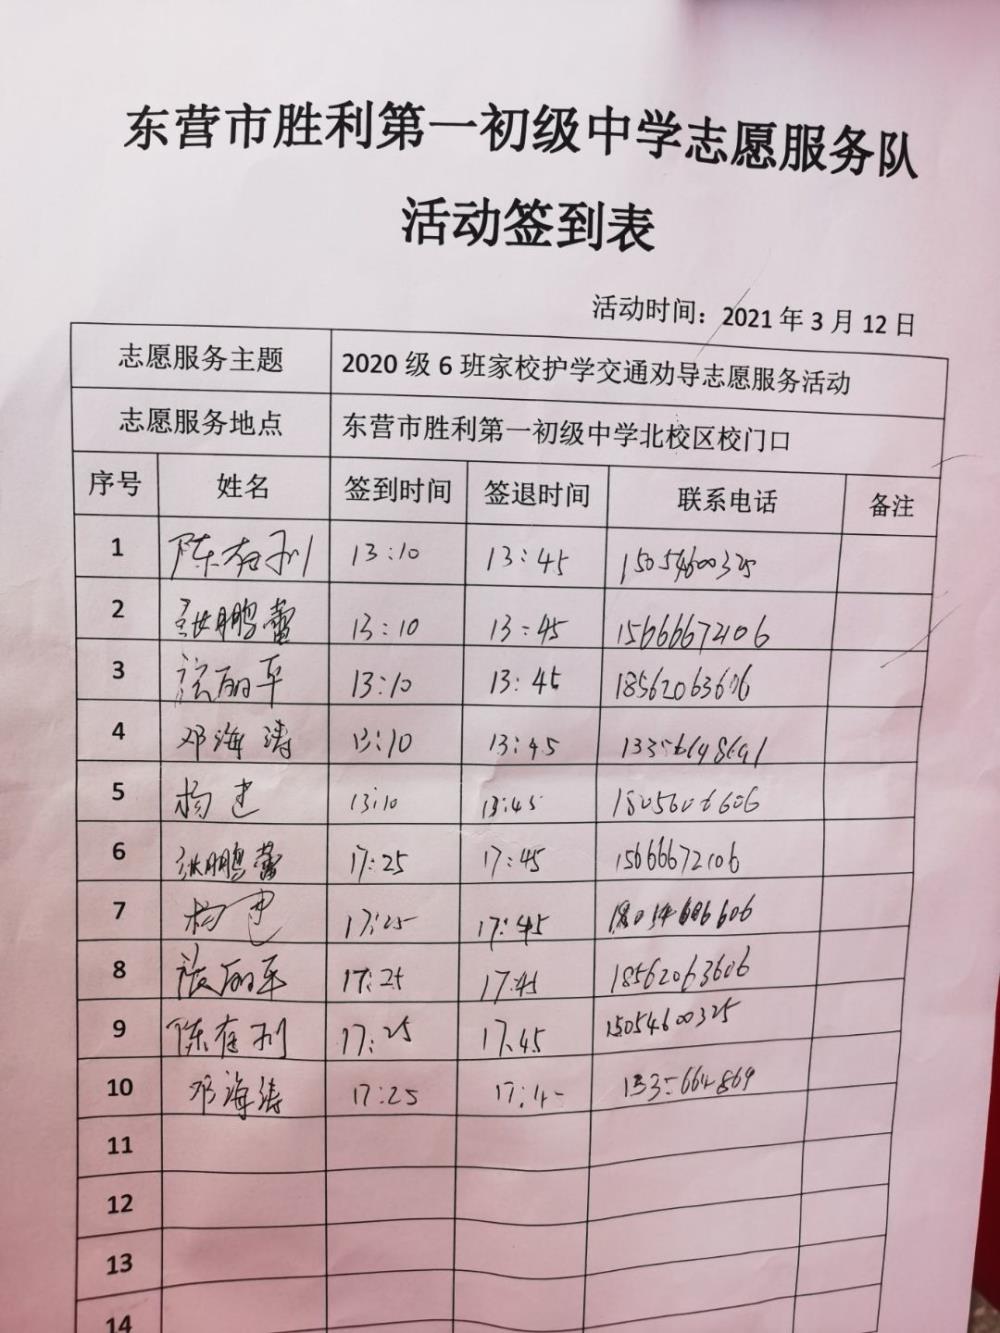 东营市胜利第一初级中学志愿服务队
活动签到表
活动时间：2021年3月12日
志愿服务主题 2020级6班家校护学交通劝导志愿服务活动
志愿服务地点 东营市胜利第一初级中学北校区校门口
序号 姓名 签到时间 签退时间 联系电话 备注
1 陈有利 13:10 13:45 15054600325
2 张鹏蕾 13:10 13:45 15666672106
3 张丽平 13:10 13:45 18562063606
4 邓海涛 13:10 13:45
5 杨建 13:10 13:45
6 张鹏蕾 17:25 17:45 15666672106
7 杨建 17:25 17:45
8 张丽平 17:25 17:45 18562063606
9 陈有利 17:25 17:45 15054600325
10 邓海涛 17:25
11
12
13
14